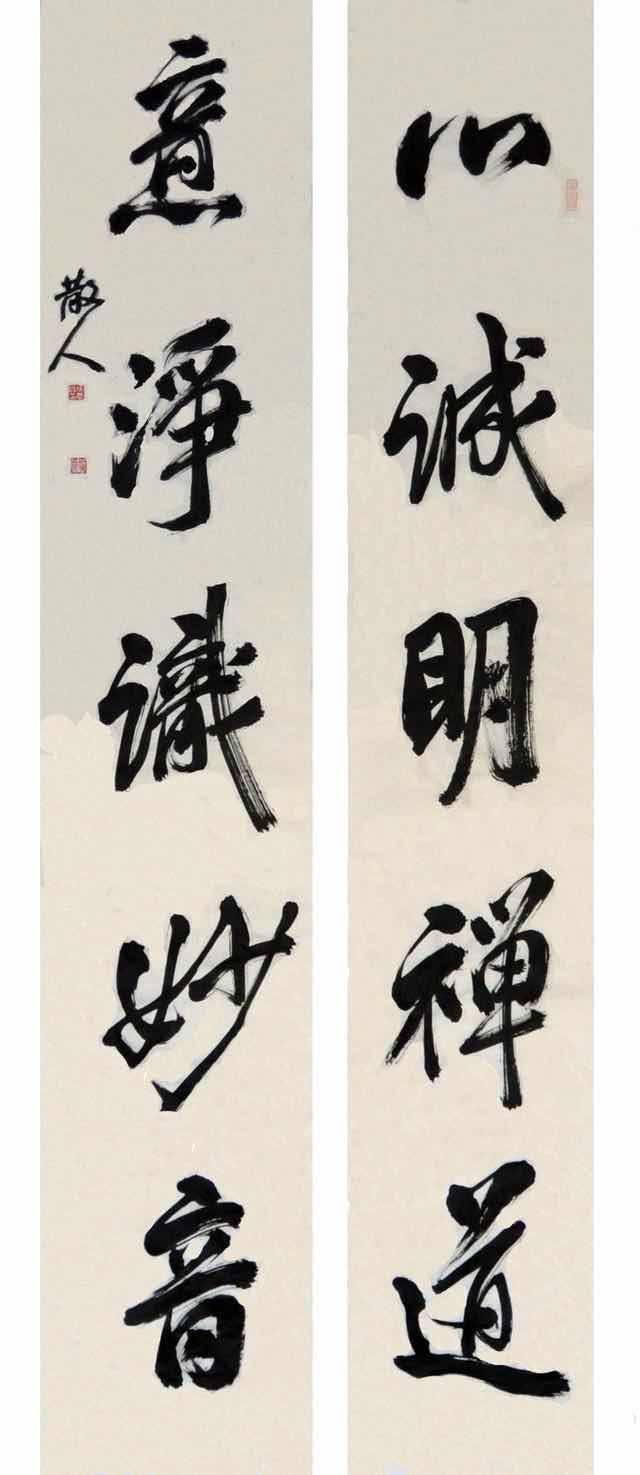 心誠明禅道
意淨識妙音
散人